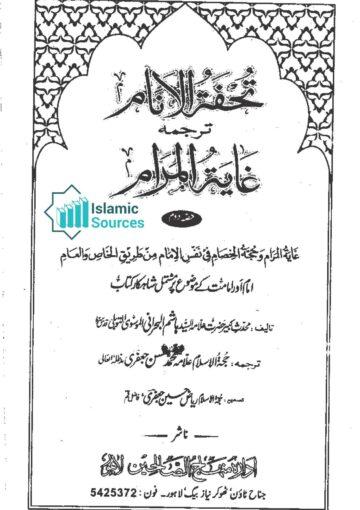 تحفۃ الانام
ترجمہ
غایۃ المرام
Islamic
Sources
حصہ دوم
غایۃ المرام وحجۃ الخصام فی تعین الامام من طریق الخاص والعام
امام اور امامت کے موضوع پر مشتمل شاہکار کتاب
تالیف: محدث کبیر حضرت علامہ السید ہاشم البحرانی الموسوی التوبلی
ترجمہ: حجۃ الاسلام علامہ محمد حسن جعفری مدظلہ العالی
حجۃ الاسلام ریاض حسین جعفری فاضل قم
ناشر
ادارہ منہاج الصالحین لاہور
جناح ٹاؤن ٹھوکر نیاز بیگ لاہور۔ فون: 5425372